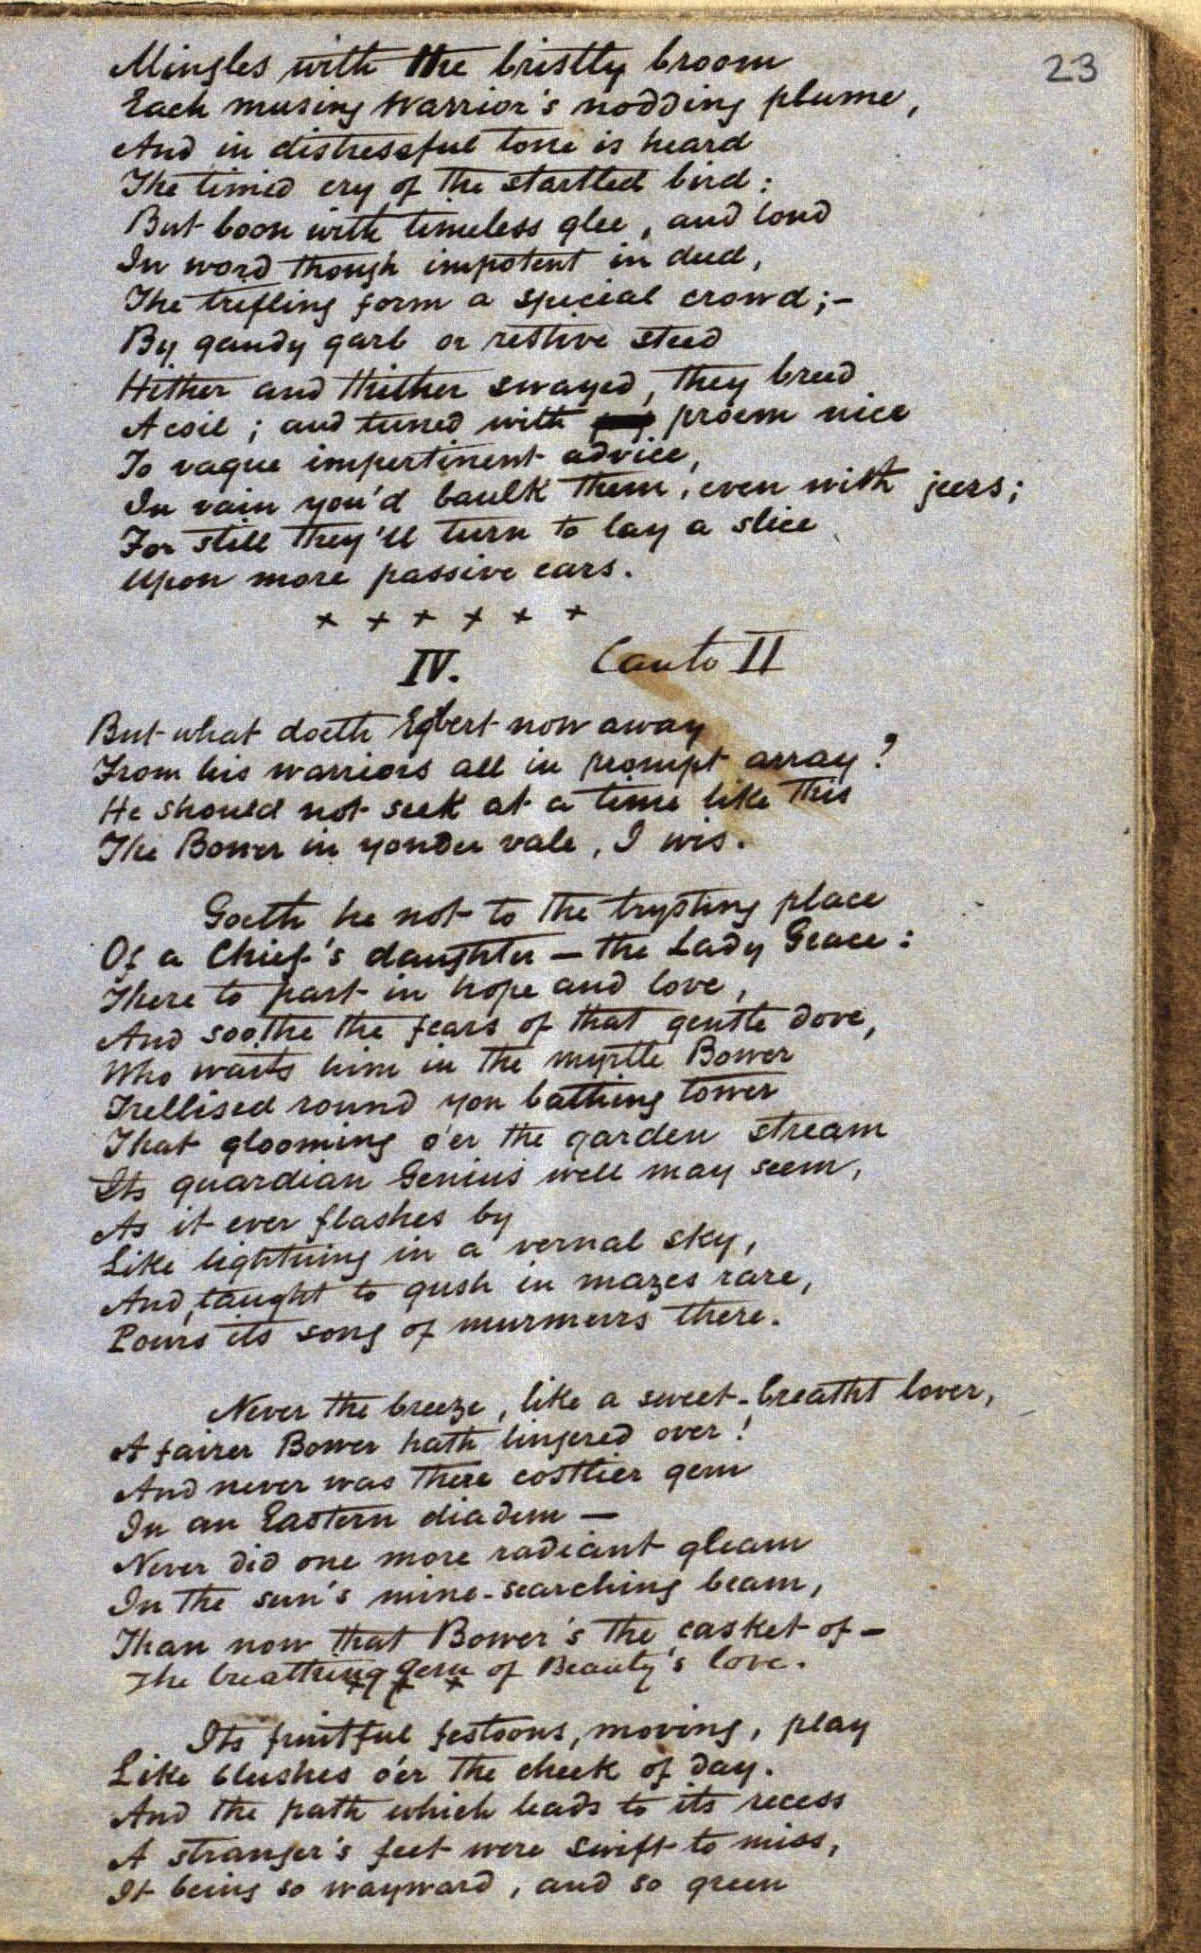 23
Mingles with the bristly broom
Each musing Warrior's nodding plume,
And in distressful tone is heard
The timid cry of the startled bird:
But boon with timeless glee, and loud
In word though impotent in deed,
The trifling form a special crowd;-
By gaudy garb or restive steed
Hither and thither swayed, they breed
A coil; and tuned with proem nice
To vague impertinent advice,
In vain you'd baulk them, even with jeers;
For still they'll turn to lay a slice
Upon more passive ears.
+ + + + + +
IV. Canto II
But what doeth Egbert now away
From his warriors all in prompt array?
He should not seek at a time like this
The Bower in yonder vale, I wis.
Goeth he not to the trysting place
Of a Chief's daughter — the Lady Grace:
There to part in hope and love,
And soothe the fears of that gentle dove,
Who waits him in the myrtle Bower
Trellised round yon bathing tower
That glooming o'er the garden stream
Its guardian Genius well may seem,
As it ever flashes by
Like lightning in a vernal sky,
And, taught to gush in mazes rare,
Pours its song of murmurs there.
Never the breeze, like a sweet-breatht lover,
A fairer Bower hath lingered over!
And never was there costlier gem
In an Eastern diadem —
Never did one more radiant gleam
In the sun's mine-searching beam,
Than now that Bower's the casket of —
The breathing gem of Beauty's love.
+ + +
Its fruitful festoons, moving, play
Like blushes o'er the cheek of day.
And the path which leads to its recess
A stranger's feet were swift to miss,
It being so wayward, and so green